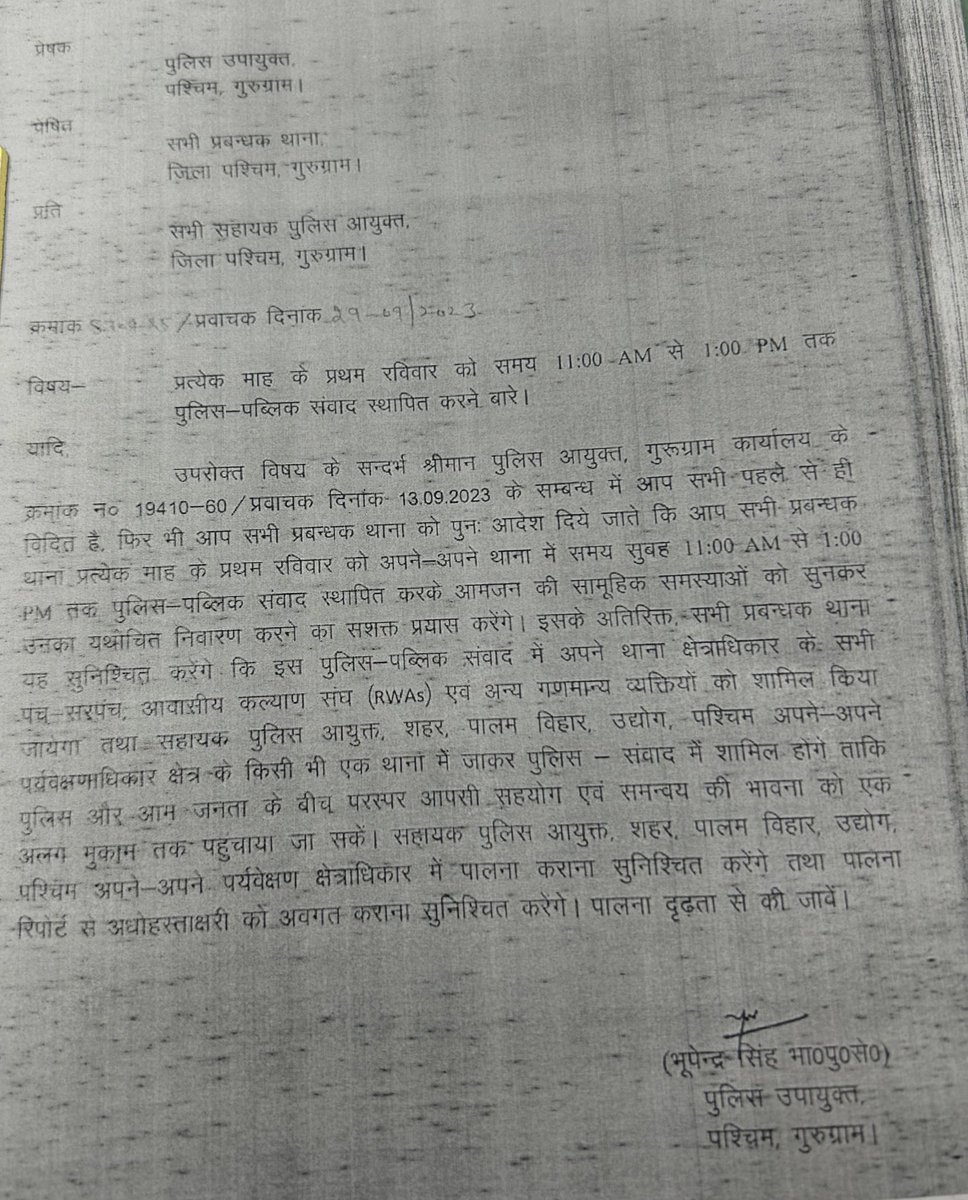 प्रेषक
पुलिस उपायुक्त,
पश्चिम, गुरुग्राम।
प्रेषित
सभी प्रबन्धक थाना,
जिला पश्चिम, गुरुग्राम।
प्रति
सभी सहायक पुलिस आयुक्त,
जिला पश्चिम, गुरुग्राम।
क्रमांक /प्रवाचक दिनांक 29-09/2023
विषय– प्रत्येक माह के प्रथम रविवार को समय 11:00 AM से 1:00 PM तक
पुलिस–पब्लिक संवाद स्थापित करने बारे।
यादि,
उपरोक्त विषय के सन्दर्भ श्रीमान पुलिस आयुक्त, गुरूग्राम कार्यालय के
क्रमांक न० 19410–60/प्रवाचक दिनांक 13.09.2023 के सम्बन्ध में आप सभी पहले से ही
विदित है, फिर भी आप सभी प्रबन्धक थाना को पुनः आदेश दिये जाते कि आप सभी प्रबन्धक
थाना प्रत्येक माह के प्रथम रविवार को अपने–अपने थाना में समय सुबह 11:00 AM से 1:00
PM तक पुलिस–पब्लिक संवाद स्थापित करके आमजन की सामूहिक समस्याओं को सुनकर
उनका यथोचित निवारण करने का सशक्त प्रयास करेंगे। इसके अतिरिक्त सभी प्रबन्धक थाना
यह सुनिश्चित करेंगे कि इस पुलिस–पब्लिक संवाद में अपने थाना क्षेत्राधिकार के सभी
पंच–सरपंच, आवासीय कल्याण संघ (RWAs) एवं अन्य गणमान्य व्यक्तियों को शामिल किया
जायेगा तथा सहायक पुलिस आयुक्त, शहर, पालम विहार, उद्योग, पश्चिम अपने–अपने
पर्यवेक्षणाधिकार क्षेत्र के किसी भी एक थाना में जाकर पुलिस – संवाद में शामिल होंगे ताकि
पुलिस और आम जनता के बीच परस्पर आपसी सहयोग एवं समन्वय की भावना को एक
अलग मुकाम तक पहुंचाया जा सकें। सहायक पुलिस आयुक्त, शहर, पालम विहार, उद्योग,
पश्चिम अपने–अपने पर्यवेक्षण क्षेत्राधिकार में पालना कराना सुनिश्चित करेंगे तथा पालना
रिपोर्ट से अधोहस्ताक्षरी को अवगत कराना सुनिश्चित करेंगे। पालना दृढ़ता से की जावें।
(भूपेन्द्र सिंह भा०पु०से०)
पुलिस उपायुक्त,
पश्चिम, गुरुग्राम।